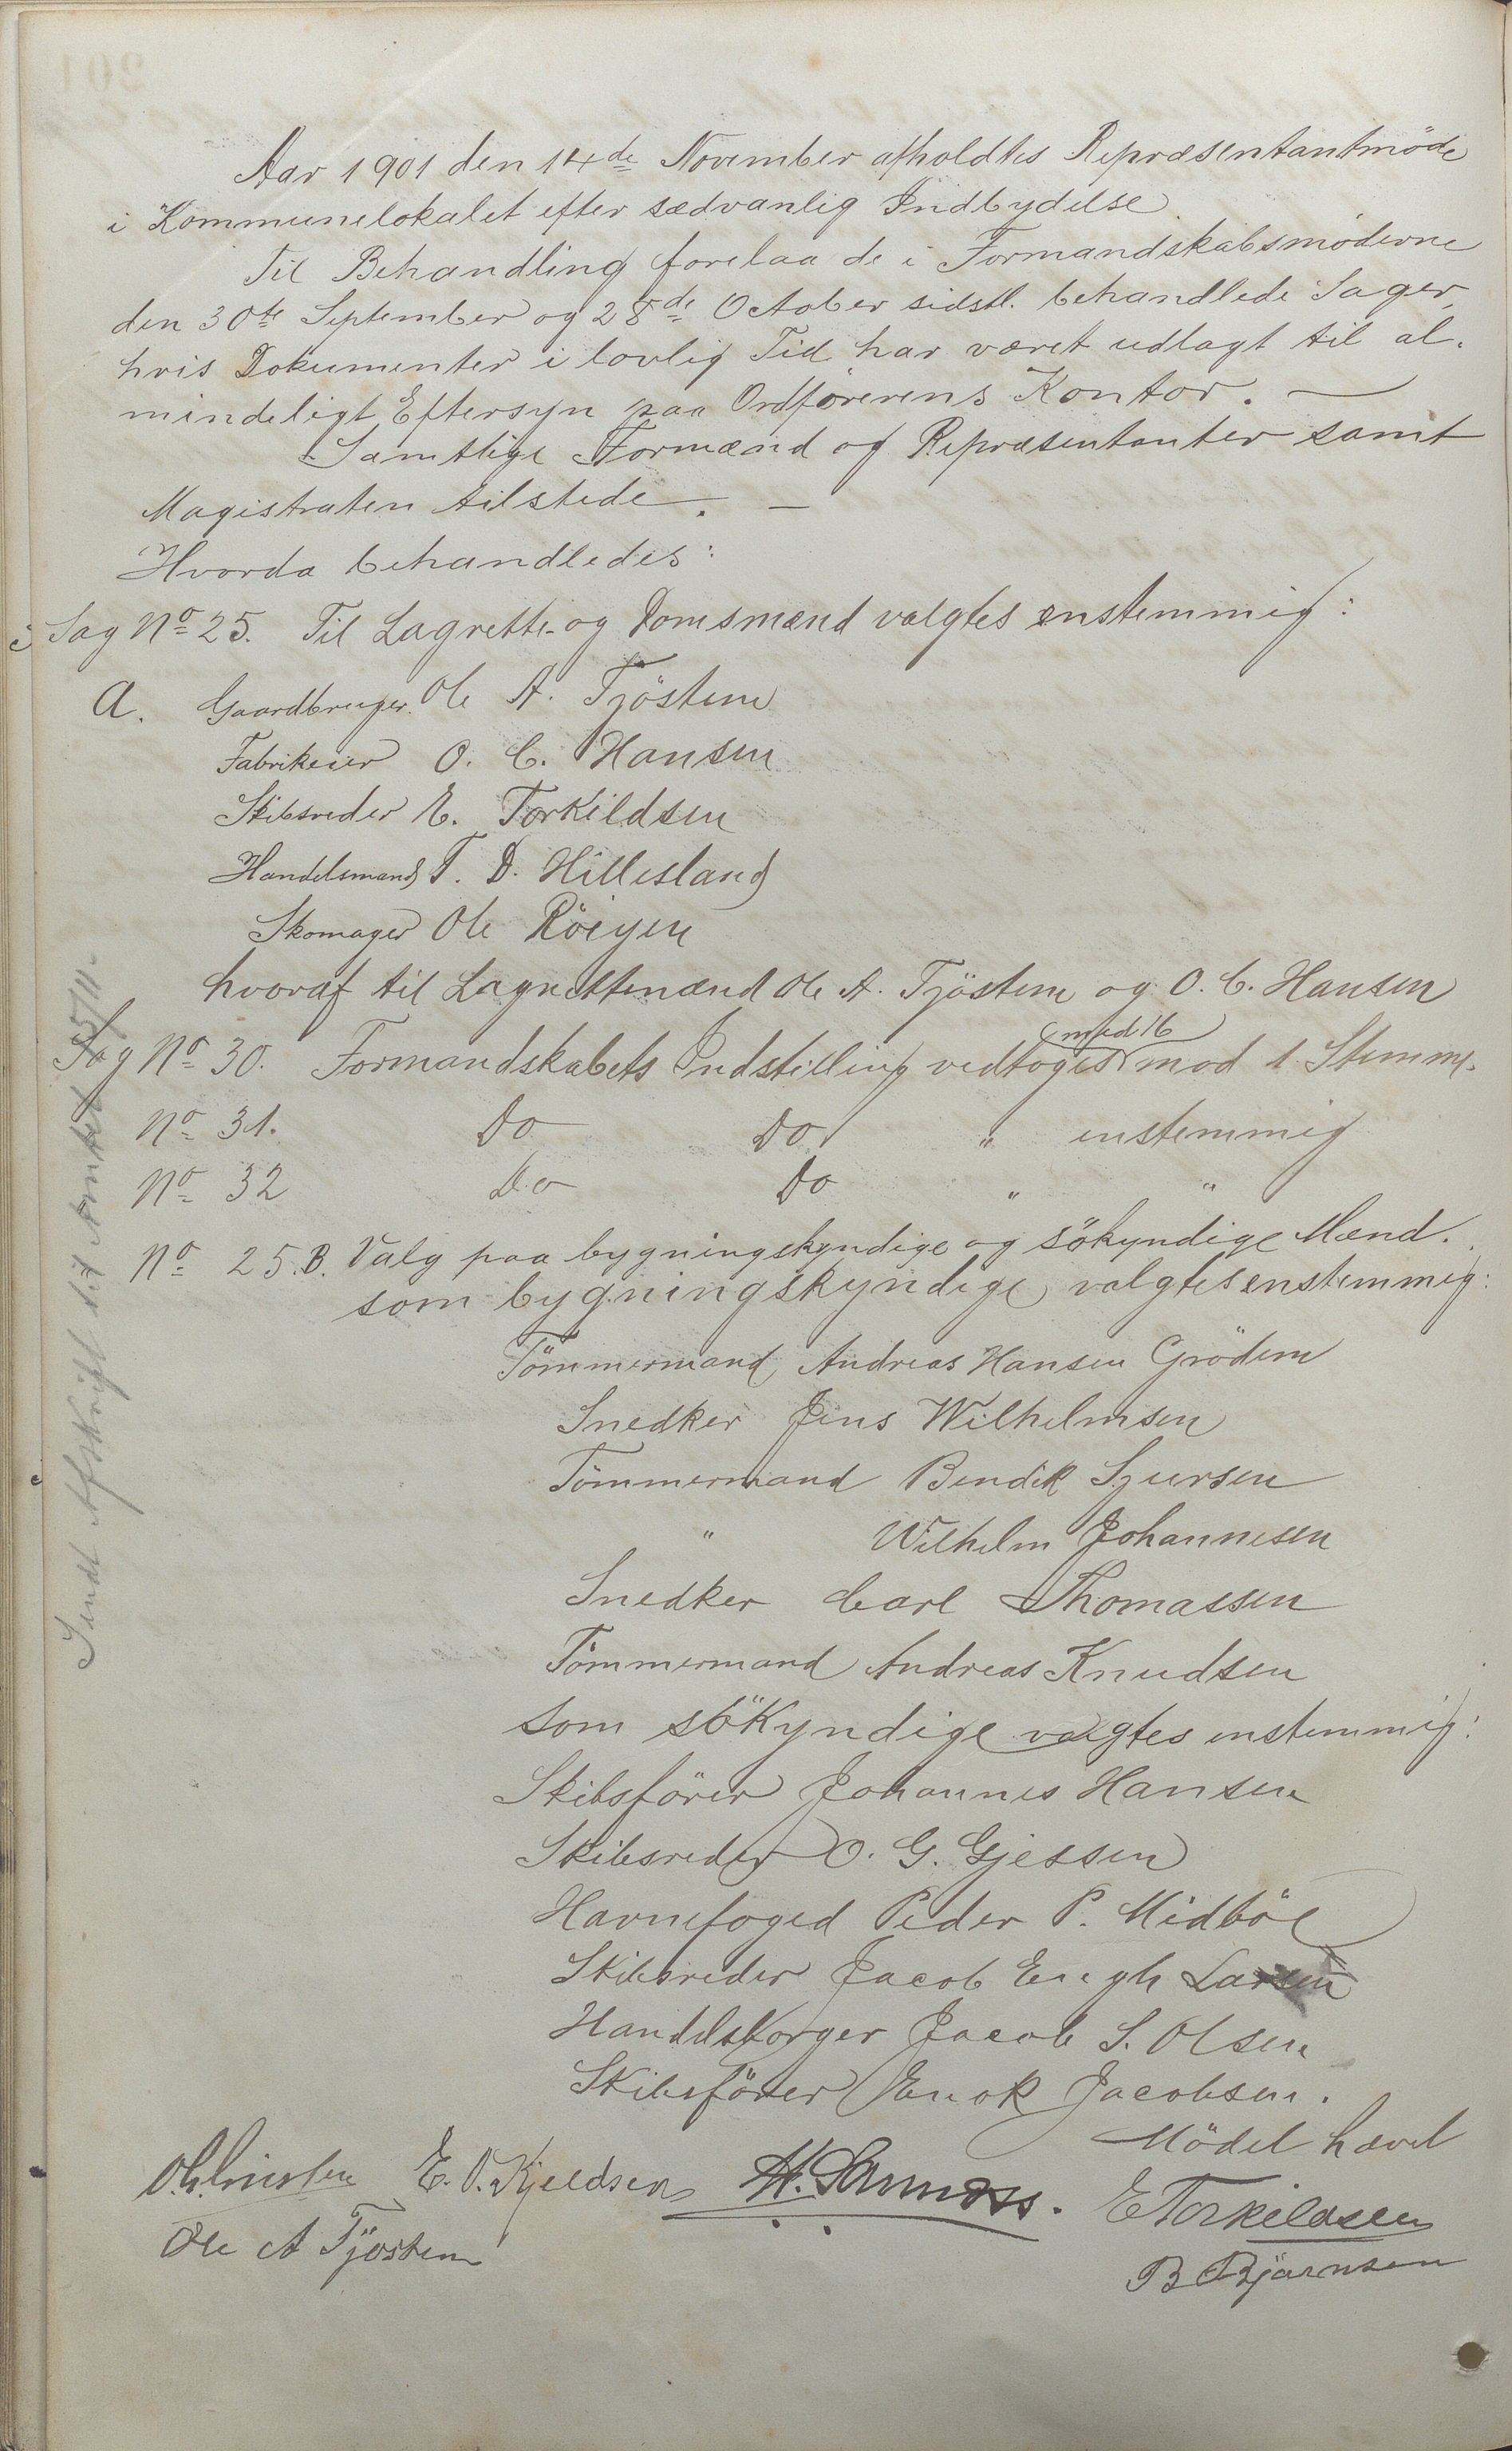 Aar 1901 den 14de November afholdtes Repræsentantmöde
i Kommunelokalet efter sædvanlig Indbydelse.
Til Behandling forelaa de i Formandskabsmöderne
den 30te September og 28de October sidstl. behandlede Sager,
hvis Dokumenter i lovlig Tid har været udlagt til al-
mindeligt Eftersyn paa Ordförerens Kontor. —
Samtlige Formænd og Repræsentanter samt
Magistraten tilstede. —
Hvorda behandledes:
Sag No 25. Til Lagrette- og Domsmænd valgtes enstemmig:
A. Gaardbruger Ole A. Tjöstem
Fabrikeier O. C. Hansen
Skibsreder E. Torkildsen
Handelsmand T. D. Hillesland
Skomager Ole Röigen
hvoraf til Lagrettemænd Ole A. Tjöstem og O. C. Hansen
Sag No 30. Formandskabets Indstilling vedtoges med 16 mod 1 Stemme.
No 31. Do Do " enstemmig
No 32 Do Do " "
No 25.B. Valg paa bygningskyndige og sökyndige Mænd.
som bygningskyndige valgtes enstemmig:
Tömmermand Andreas Hansen Grödem
Snedker Jens Wilhelmsen
Tömmermand Bendik Sjursen
" Wilhelm Johannesen
Snedker Carl Thomassen
Tömmermand Andreas Knudsen
som sökyndige valgtes enstemmig:
Skibsförer Johannes Hansen
Skibsreder O. G. Gjessen
Havnefoged Peder P. Midböe
Skibsreder Jacob Engh Larsen
Handelsborger Jacob S. Olsen
Skibsförer Enok Jacobsen.
Mödet hævet
E. O. Kjeldsen E Torkildsen
Ole A Tjöstem B Bjärnsen
Sendt Afskrift til Amtet 15/11-